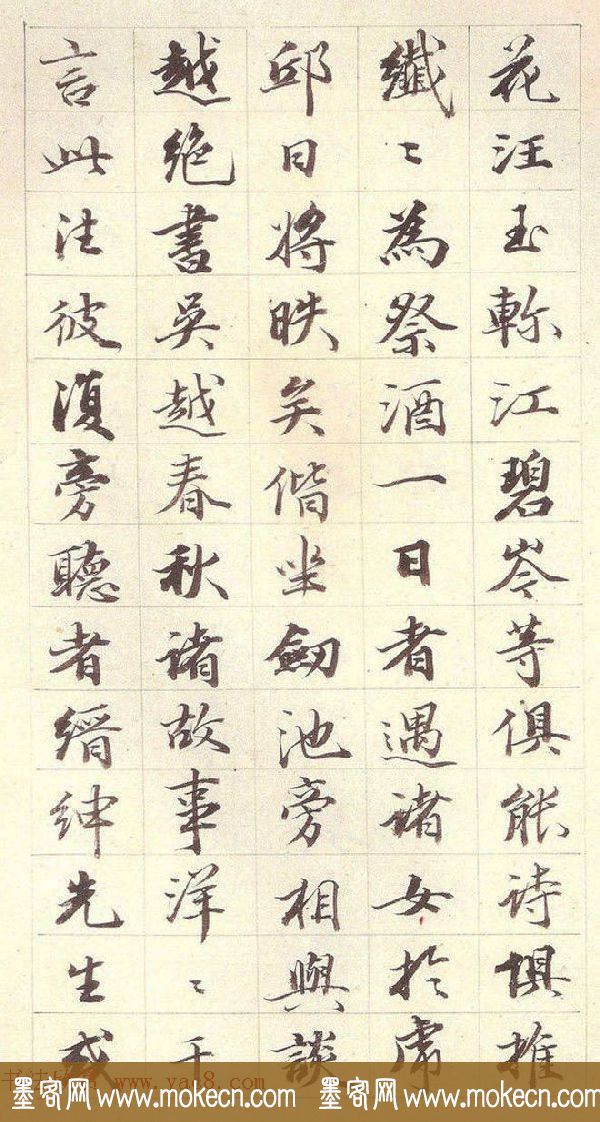 花汪玉軫江碧岑等俱能诗俱推
纖〻為祭酒一日者遇诸女於虎
邱日將昳矣偕坐劒池旁相與談
越绝書吳越春秋诸故事洋〻千
言此往彼復旁聽者缙绅先生或
书法 www.yac8.com
墨客网 www.mokecn.com 墨客网 www.mokecn.com